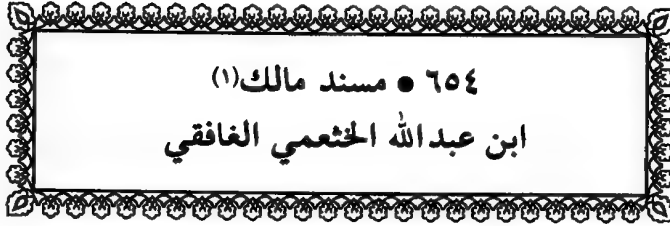 ٦٥٤ • مسند مالك(١)
ابن عبدالله الخثعمي الغافقي